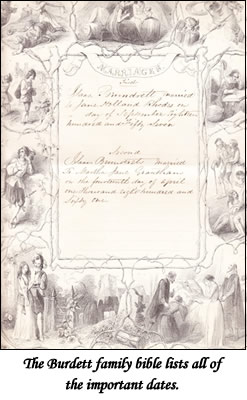 MARRIAGES
First
married
to Jane Holland Rhodes on
day of September Eighteen
hundred and Fifty Seven
Second
married
To Martha Jane Grantham
on the fourteenth day of April
one thousand eight hundred and
Sixty one
The Burdett family bible lists all of
the important dates.